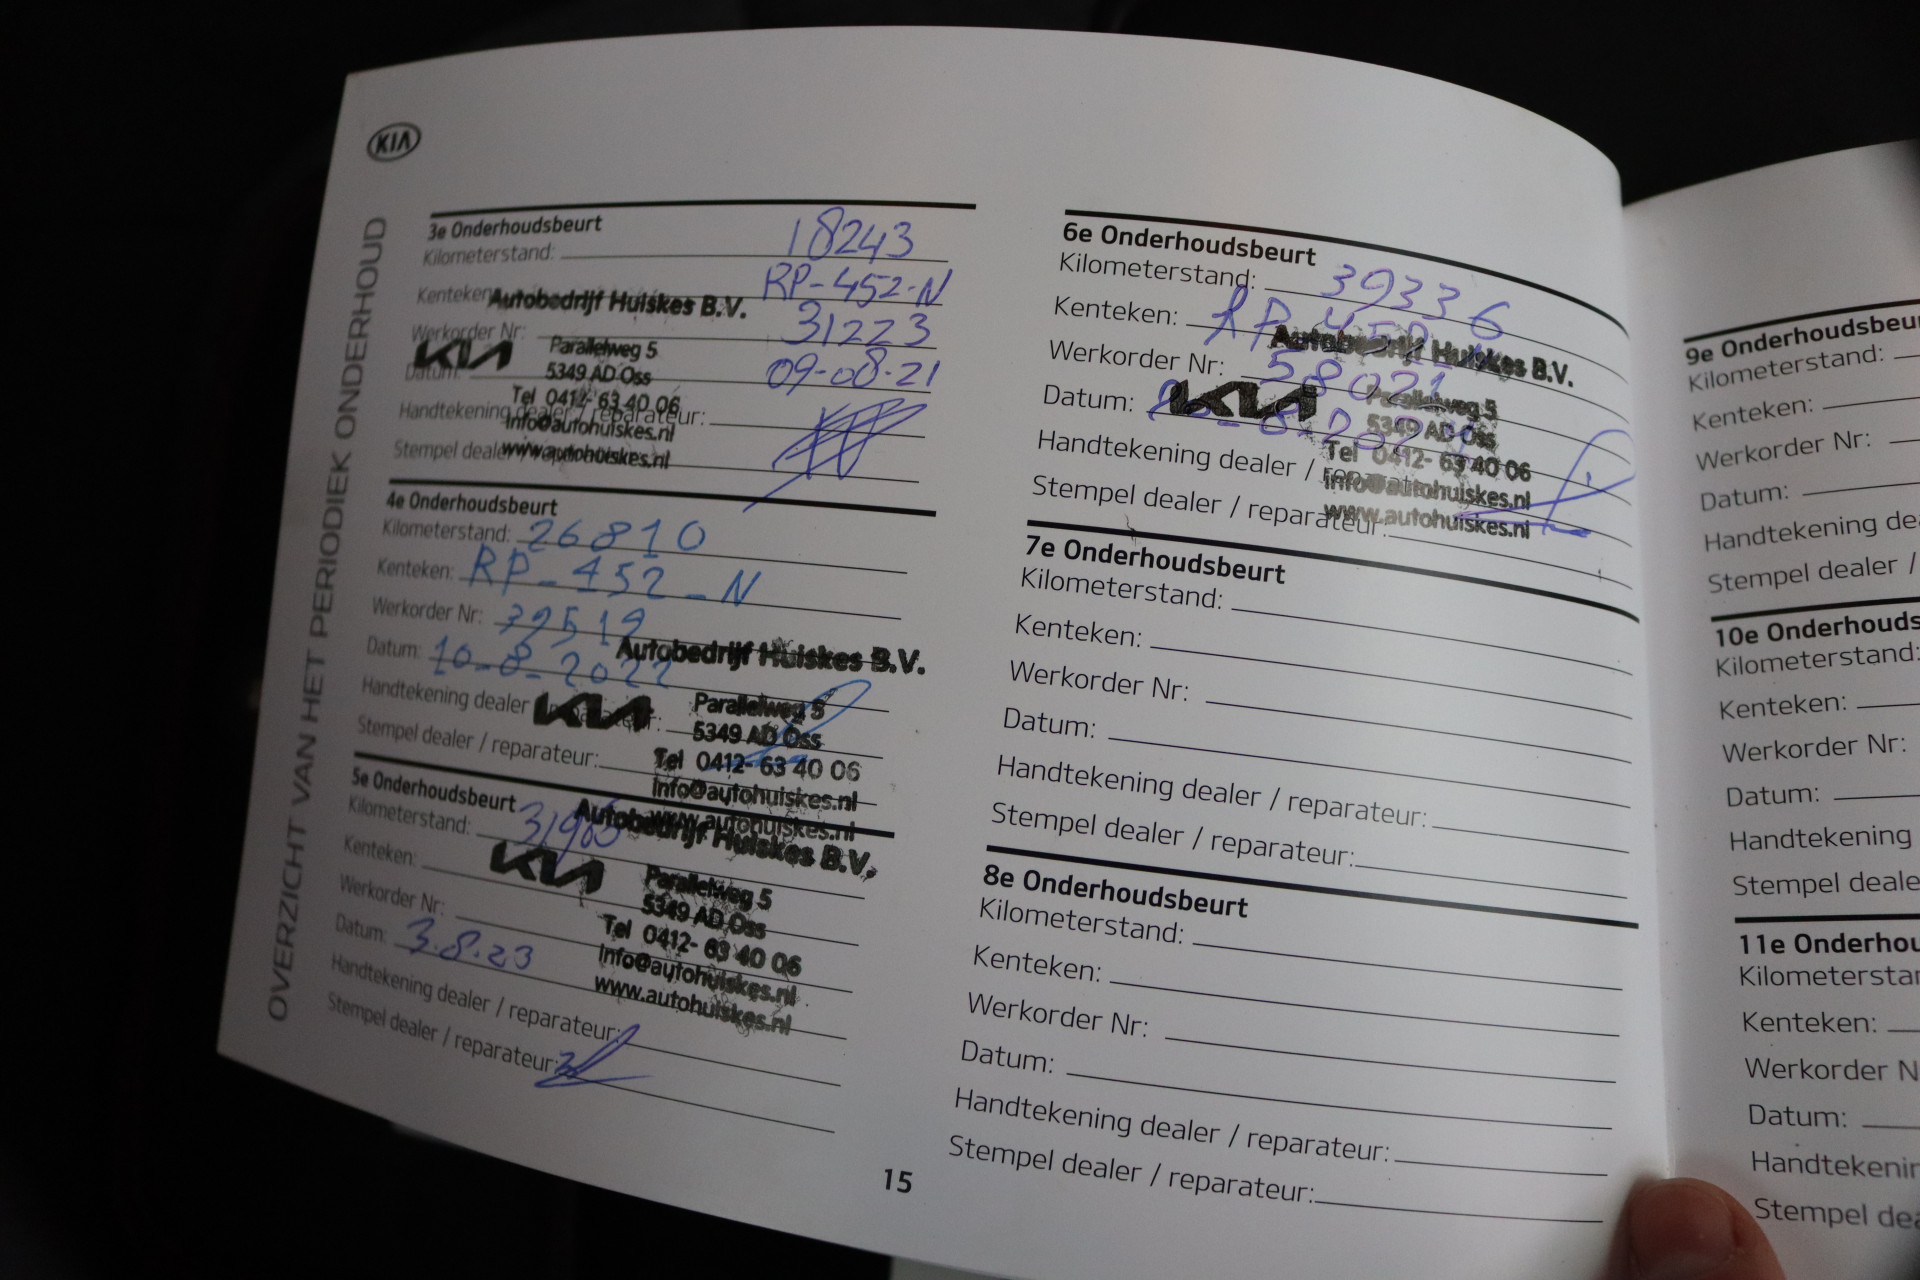 KIA
OVERZICHT VAN HET PERIODIEK ONDERHOUD
3e Onderhoudsbeurt
Kilometerstand: 18243
Kenteken RP-452-N
Autobedrijf Huiskes B.V.
Werkorder Nr: 31223
KIA Parallelweg 5
Datum: 09-08-21
5349 AD Oss
Tel 0412- 63 40 06
Handtekening dealer / reparateur:
info@autohuiskes.nl
Stempel dealer
www.autohuiskes.nl
4e Onderhoudsbeurt
Kilometerstand: 26810
Kenteken: RP-452-N
Werkorder Nr: 39519
Datum: 10-8-2022
Autobedrijf Huiskes B.V.
Handtekening dealer
KIA Parallelweg 5
5349 AD Oss
Stempel dealer / reparateur:
Tel 0412- 63 40 06
info@autohuiskes.nl
www.autohuiskes.nl
5e Onderhoudsbeurt
Kilometerstand:
Autobedrijf Huiskes B.V.
Kenteken:
KIA Parallelweg 5
5349 AD Oss
Werkorder Nr:
Tel 0412- 63 40 06
Datum: 3.8.23
info@autohuiskes.nl
www.autohuiskes.nl
Handtekening dealer / reparateur:
Stempel dealer / reparateur:
15
6e Onderhoudsbeurt
Kilometerstand: 39336
Kenteken: RP
Autobedrijf Huiskes B.V.
Werkorder Nr: 58021
KIA Parallelweg 5
Datum:
5349 AD Oss
Tel 0412- 63 40 06
Handtekening dealer /
info@autohuiskes.nl
Stempel dealer / reparateur:
www.autohuiskes.nl
7e Onderhoudsbeurt
Kilometerstand:
Kenteken:
Werkorder Nr:
Datum:
Handtekening dealer / reparateur:
Stempel dealer / reparateur:
8e Onderhoudsbeurt
Kilometerstand:
Kenteken:
Werkorder Nr:
Datum:
Handtekening dealer / reparateur:
Stempel dealer / reparateur:
9e Onderhoudsbeu
Kilometerstand:
Kenteken:
Werkorder Nr:
Datum:
Handtekening de
Stempel dealer /
10e Onderhouds
Kilometerstand:
Kenteken:
Werkorder Nr:
Datum:
Handtekening
Stempel deale
11e Onderhou
Kilometerstar
Kenteken:
Werkorder N
Datum:
Handtekenin
Stempel dea